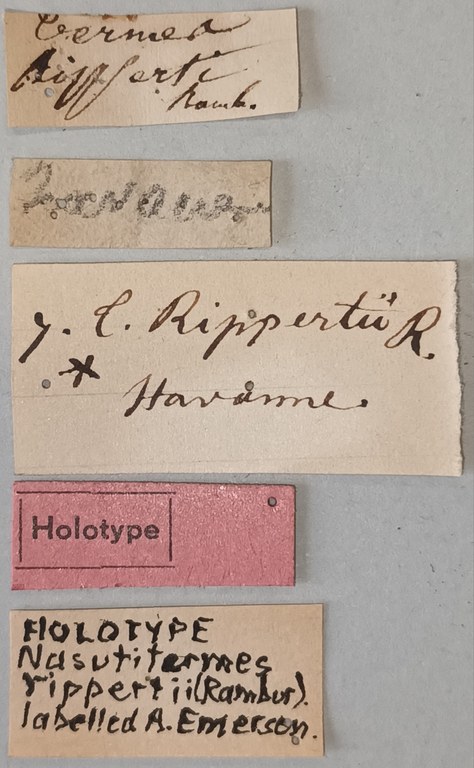 Termes
Ripperti
Ramb.
7. T. Rippertii R.
*
Havanne.
Holotype
HOLOTYPE
Nasutitermes
rippertii (Rambur).
labelled A. Emerson.